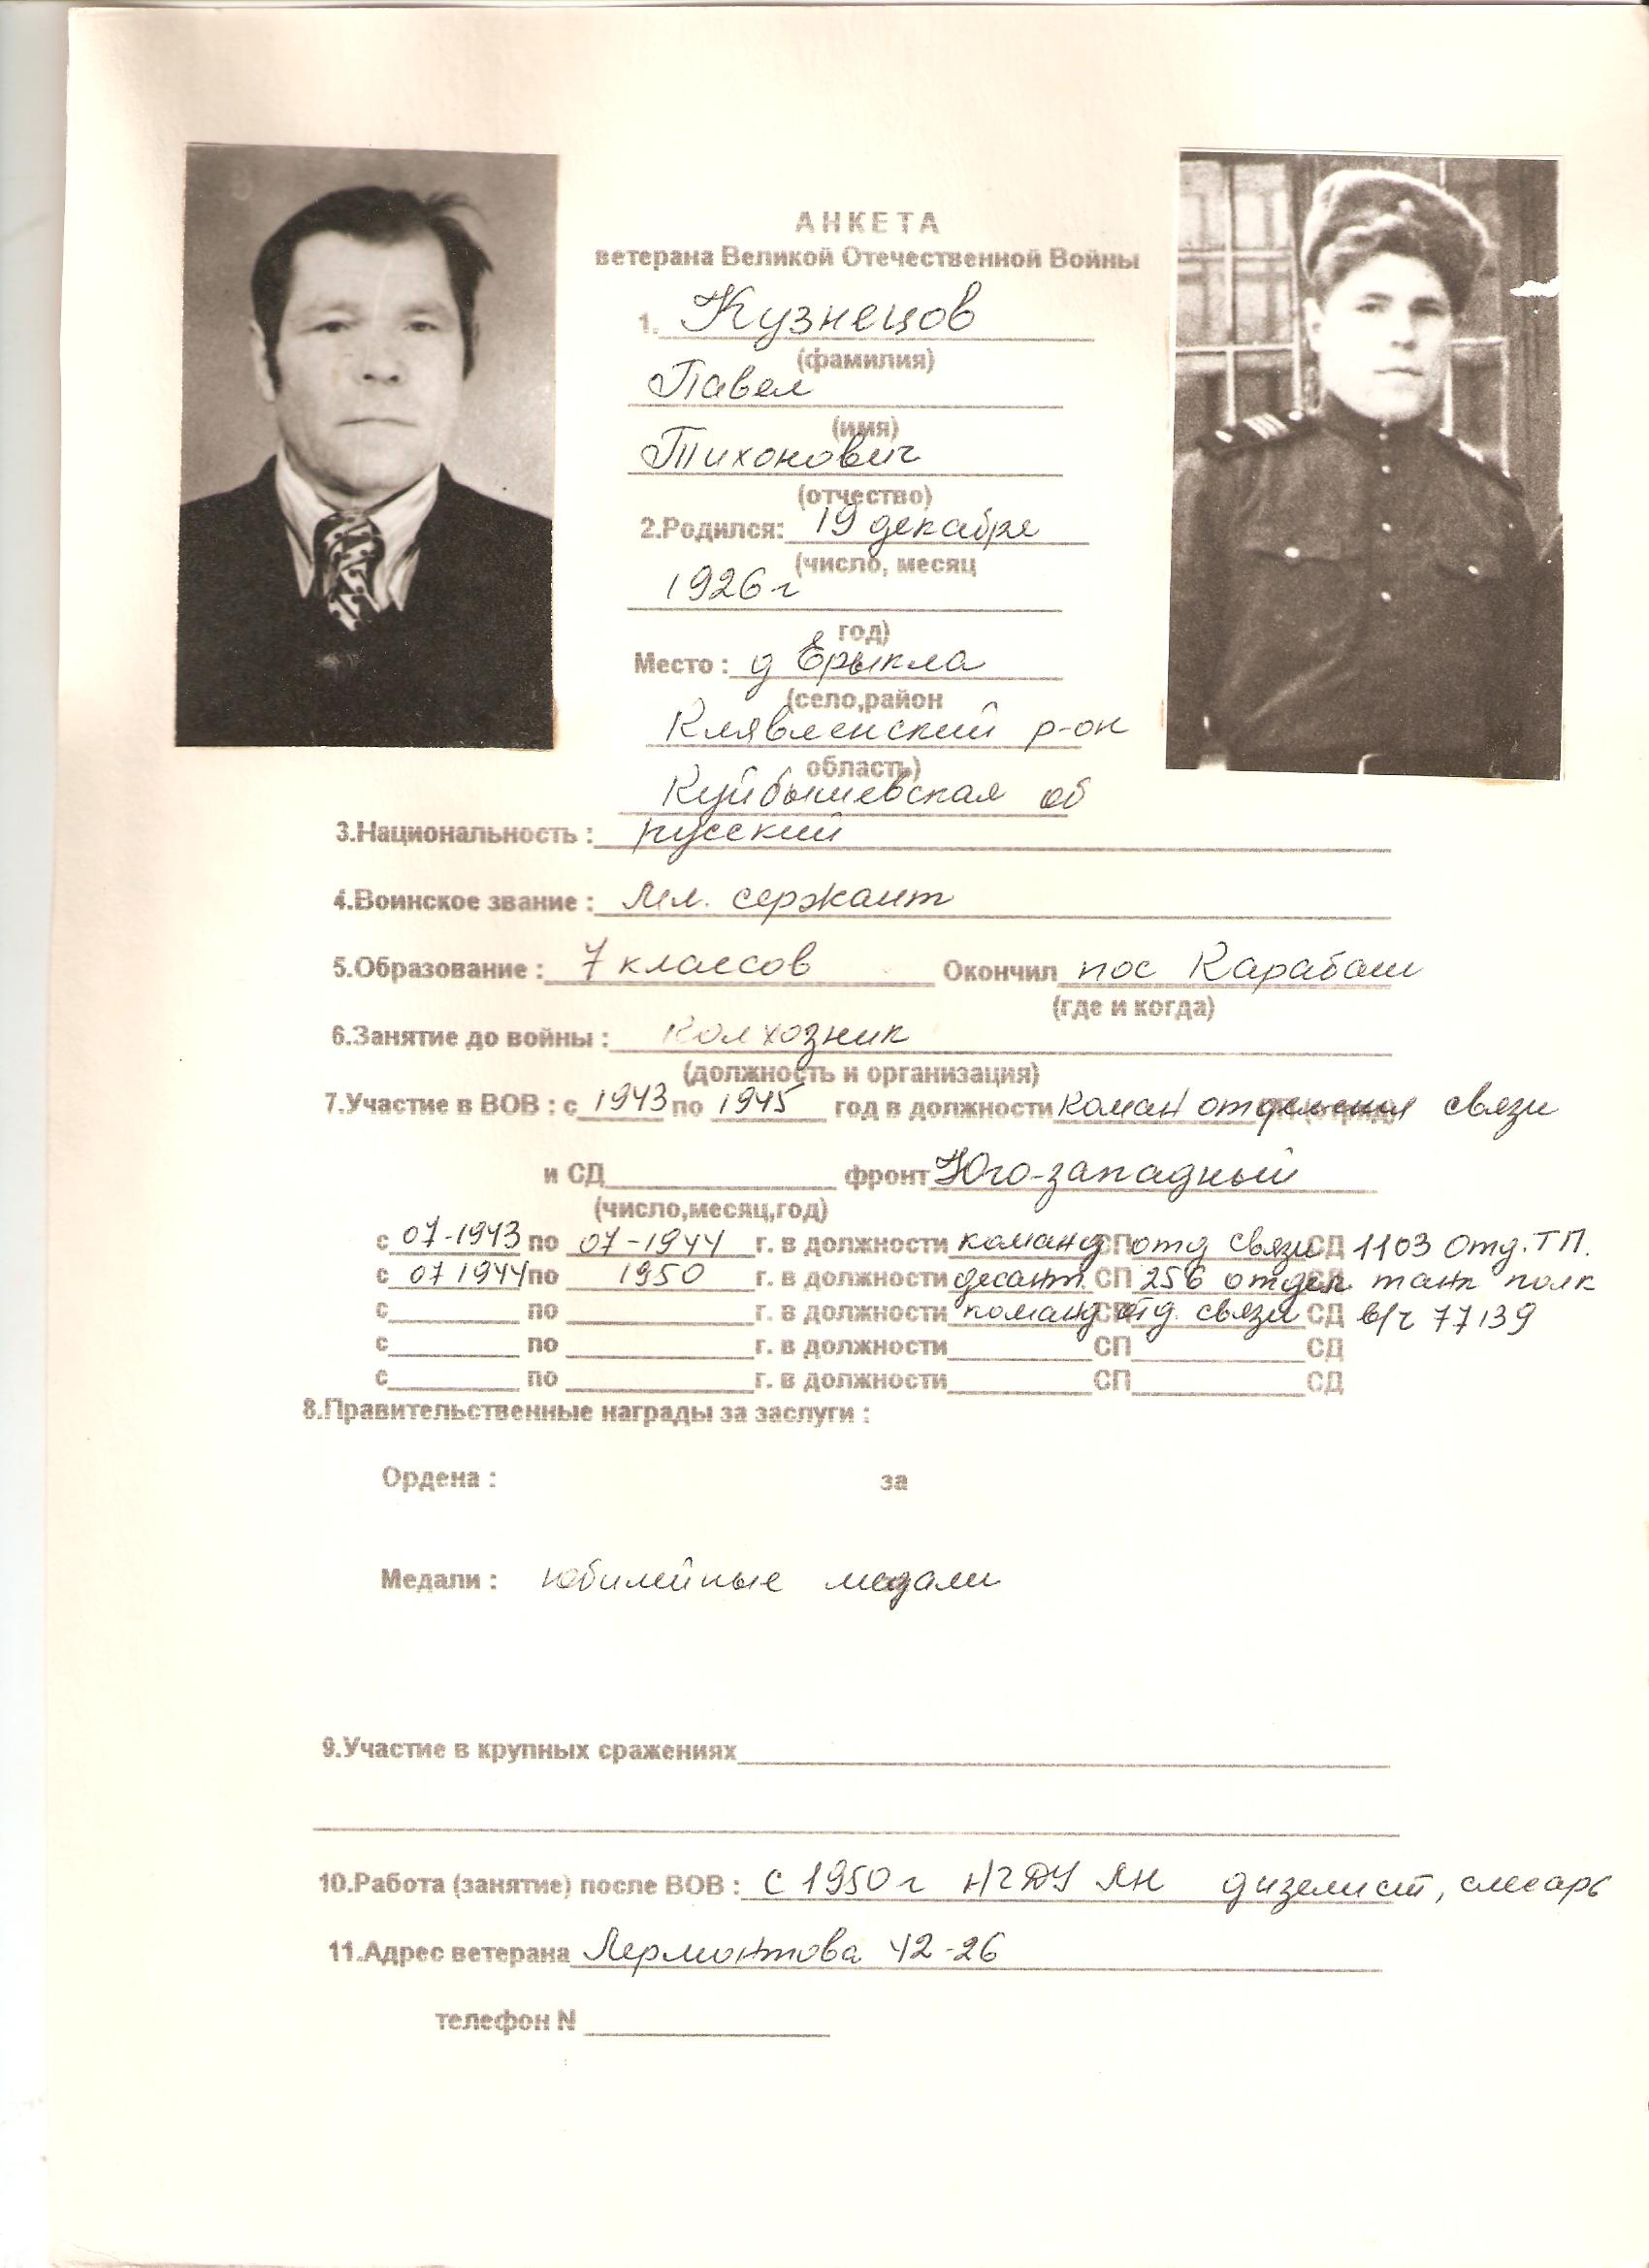 АНКЕТА
ветерана Великой Отечественной Войны
1. Кузнецов
(фамилия)
Павел
(имя)
Тихонович
(отчество)
2.Родился: 19 декабря
(число, месяц
1926 г
год)
Место : д Ерыкла
(село,район
Клявленский р-он
область)
Куйбышевская об
3.Национальность : русский
4.Воинское звание : Мл. сержант
5.Образование : 7 классов Окончил пос Карабаш
(где и когда)
6.Занятие до войны : колхозник
(должность и организация)
7.Участие в ВОВ : с 1943 по 1945 год в должности коман отделения связи
и СД фронт Юго-западный
(число,месяц,год)
с 07-1943 по 07-1944 г. в должности команд СП отд связи СД 1103 отд. ТП.
с 07 1944 по 1950 г. в должности десант. СП 256 отдел танк полк
с по г. в должности команд отд. связи СД в/ч 77139
с по г. в должности СП СД
с по г. в должности СП СД
8.Правительственные награды за заслуги :
Ордена : за
Медали : юбилейные медали
9.Участие в крупных сражениях
10.Работа (занятие) после ВОВ : с 1950 г НГДУ ЛН дизелист, слесарь
11.Адрес ветерана Лермонтова 42-26
телефон N